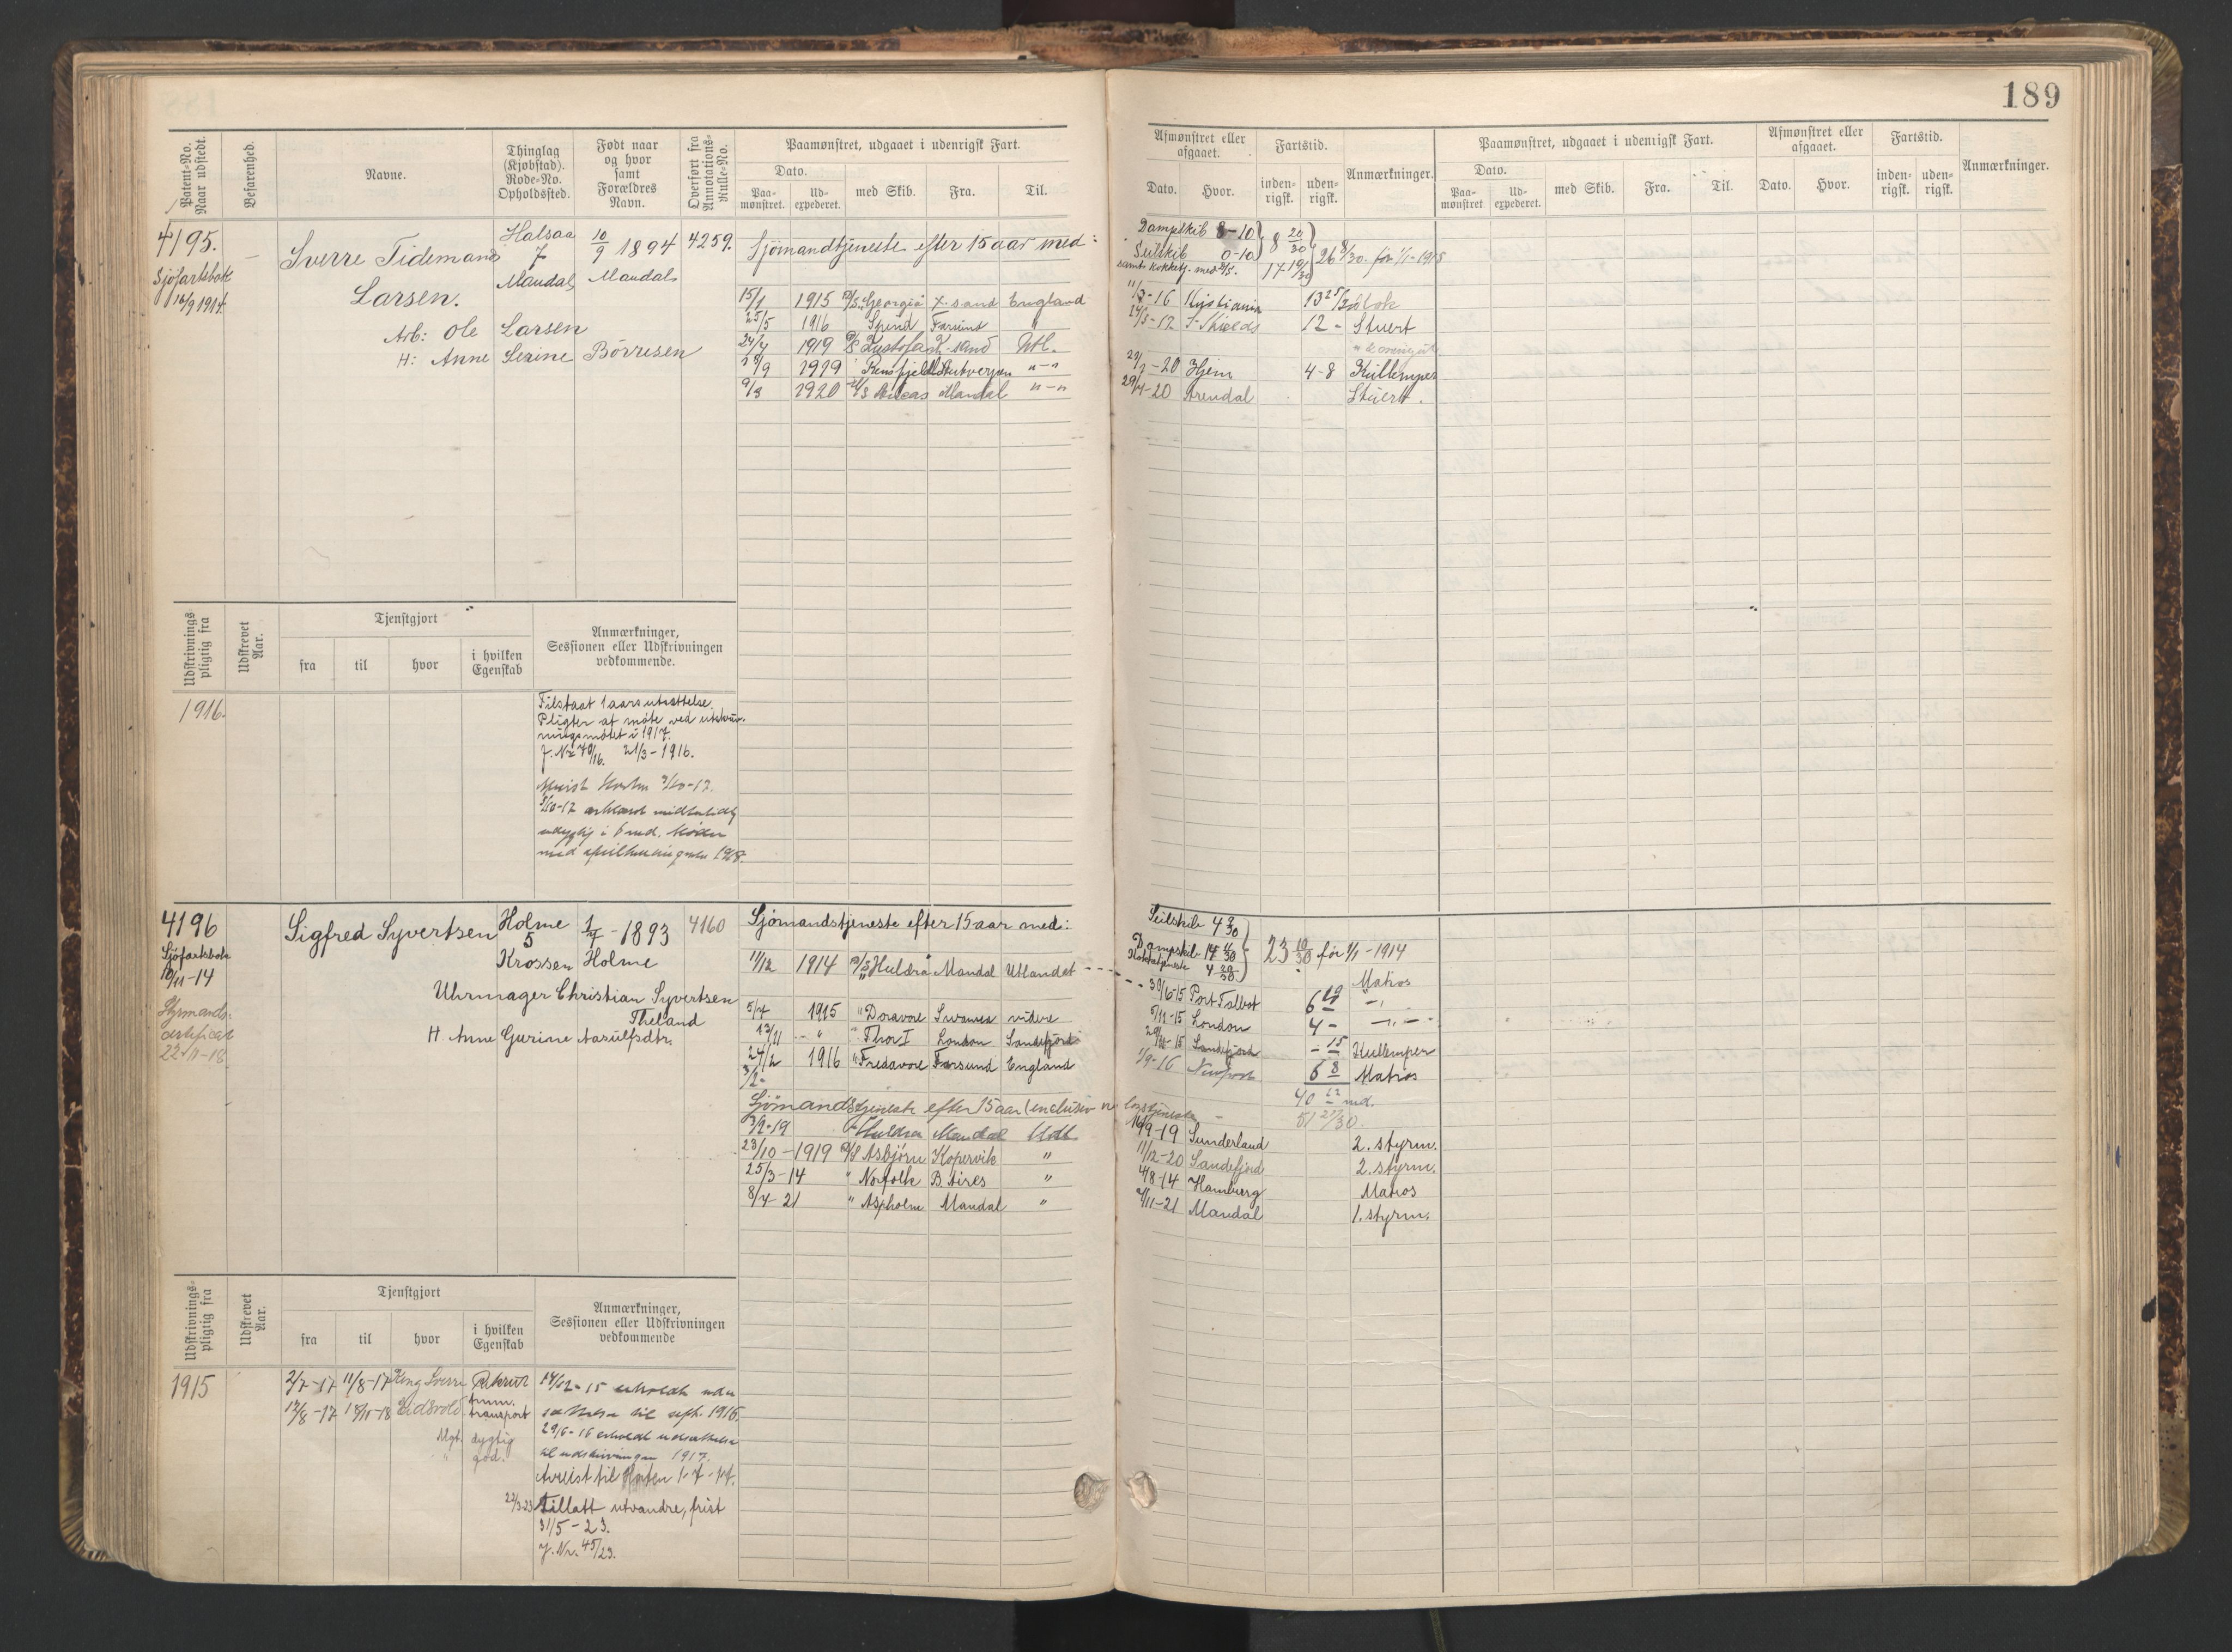 189
Patent-No.
Naar udstedt.
Befarenhed.
Navne.
Thinglag
(Kjøbstad).
Rode-No.
Opholdssted.
Født naar
og hvor
samt
Forældres
Navn.
Overført fra
Annotations-
Rulle-No.
Paamønstret, udgaaet i udenrigsk Fart.
Dato.
Paa-
mønstret.
Ud-
expederet.
med Skib.
Fra.
Til.
Afmønstret eller
afgaaet.
Dato.
Hvor.
Fartstid.
inden-
rigsk.
uden-
rigsk.
Anmærkninger.
Paamønstret, udgaaet i udenrigsk Fart.
Dato.
Paa-
mønstret
Ud-
expederet.
med Skib.
Fra.
Til.
Afmønstret eller
afgaaet.
Dato.
Hvor.
Fartstid.
inden-
rigsk.
uden-
rigsk.
Anmærkninger.
4195.
Sjøfartsbok
16/9 1914.
Sverre Tidemand
Larsen.
Halsaa
7
Mandal
10/9 1894
Mandal
4259.
Arb: Ole Larsen
H: Anne Serine Börresen
Sjömandtjeneste efter 15 aar med:
Dampskib 8-10
Seilskib 0-10
8 20/30
17 19/30
26 8/30 før 1/1-1915
15/1 1915 D/S Georgia K.sand England
-16 Kristiania 13 25/30
25/5 1916 Spind Farsund "
-17 S-Shields 12 - Stuert
24/4 1919 K-sand Utl.
18/9 1919 Rensfjell Antverpen "-"
-20 Hjem 4-8 Kullemper
9/3 1920 Mandal "-"
29/4-20 Arendal Stuert.
Udskrivnings
pligtig fra
Udskrevet
Aar.
Tjenstgjort
fra
til
hvor
i hvilken
Egenskab
Anmærkninger,
Sessionen eller Udskrivningen
vedkommende.
1916.
Tilstaat 1 aars utsættelse.
Pligter at møte ved utskriv-
ningsmötet i 1917.
J. Nr 70/16. 21/3-1916.
Horten 3/10-17.
1918.
4196
Sjöfartsbok
10/11-14
Styrmands-
certifikat
22/11-18.
Sigfred Syvertsen
Holme
5
Krossen
1/4-1893
Holme
4160
Uhrmager Christian Syvertsen
Theland
H Anne Gurine Aasulfsdtr.
Sjömandstjeneste efter 15 aar med:
Seilskib 4 9/30
Dampskib 14
Kokketjeneste 4 29/30
23 10/30 før 1/1-1914
11/12 1914 D/S Huldra Mandal Utlandet
Matros
30/6-15 Port Talbot 6 19 -"-
5/4 1915 " Doravore Swansea videre
5/11-15 London 4 - -"-
13/11 - " " Thor I London Sandefjord
29/11-15 Sandefjord - 15 Kullemper
24/2 1916 " Fredavore Farsund England
1/9-16 Newport 6 8 Matros
40 12 md.
Sjömandstjeneste efter 15 aar
51 27/30.
3/2-19 Huldra Mandal Utl.
16/9-19 Sunderland 2. styrm.
23/10-1919 D/S Asbjørn Kopervik "
11/12-20 Sandefjord 2. styrm.
25/3-14 " Norfolk B. Aires "
4/8-14 Hamburg Matros
8/4-21 " Aspholm Mandal "
9/11-21 Mandal 1. styrm.
Udskrivnings-
pligtig fra
Udskrevet
Aar.
Tjenstgjort
fra
til
hvor
i hvilken
Egenskab
Anmærkninger,
Sessionen eller Udskrivningen
vedkommende
1915
2/7-17 11/8-17 Kong Sverre Rekrut
12/8-17 18/11-18 Eidsvold
transport
Mgt. dygtig
" god.
14/12-15 erholdt uden
sættelse til sept. 1916.
29/6-16 erholdt udsættelse
til udskrivningen 1917.
Avreist til Horten 1-7-17.
22/3-23 Tillatt utvandre, frist
31/5-23.
J. Nr. 45/23.